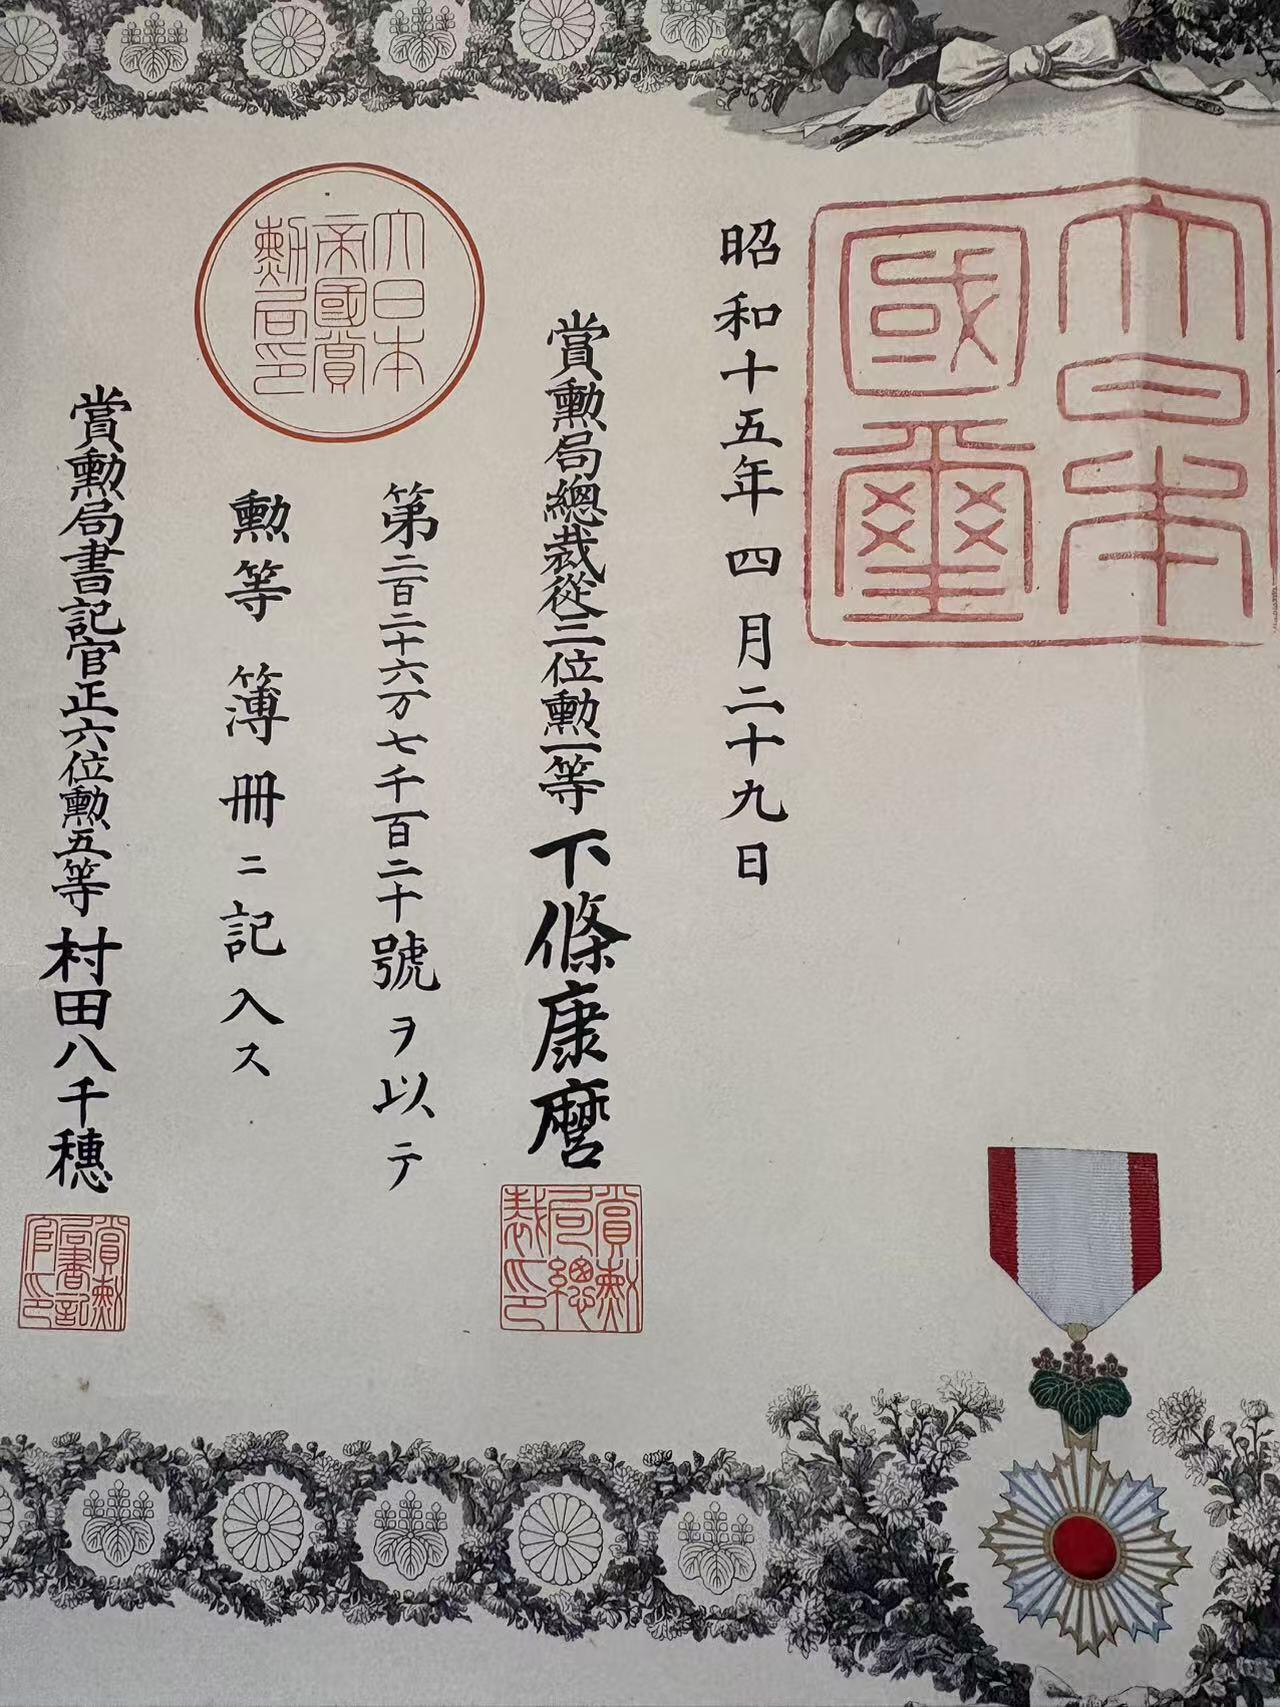 大日本
國璽
昭和十五年四月二十九日
賞勳局總裁從三位勳一等下條康麿
賞勳局總裁印
第二百二十六万七千一百二十號ヲ以テ
大日本
帝國賞
勳局印
勳等簿冊ニ記入ス
賞勳局書記官正六位勳五等村田八千穗
賞勳局書記官印